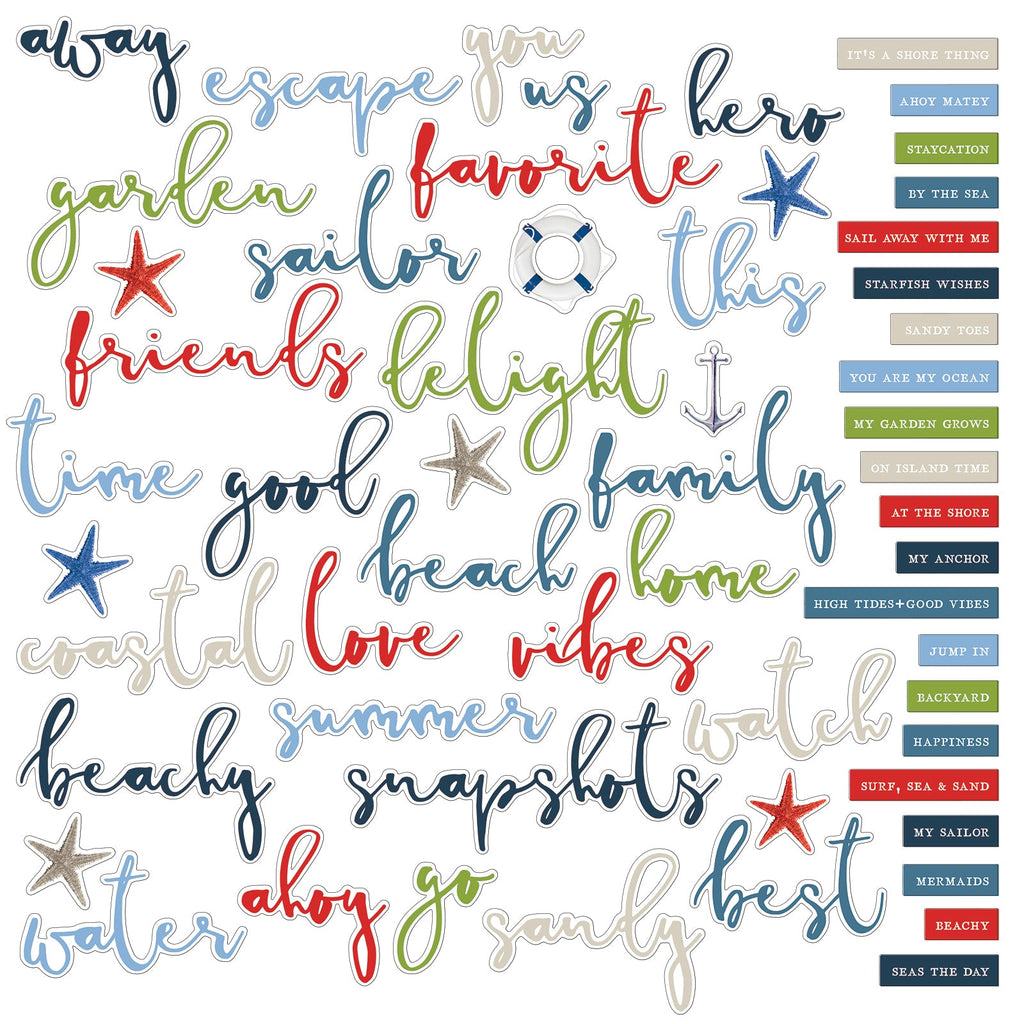 away
you
escape
us
hero
garden
favorite
sailor
this
friends
delight
time
good
family
beach
home
coastal
love
vibes
watch
summer
beachy
snapshots
best
water
ahoy
go
sandy
IT'S A SHORE THING
AHOY MATEY
STAYCATION
BY THE SEA
SAIL AWAY WITH ME
STARFISH WISHES
SANDY TOES
YOU ARE MY OCEAN
MY GARDEN GROWS
ON ISLAND TIME
AT THE SHORE
MY ANCHOR
HIGH TIDES+GOOD VIBES
JUMP IN
BACKYARD
HAPPINESS
SURF, SEA & SAND
MY SAILOR
MERMAIDS
BEACHY
SEAS THE DAY